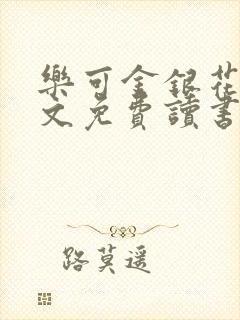 樂可金銀花
文免費讀書
路莫遥